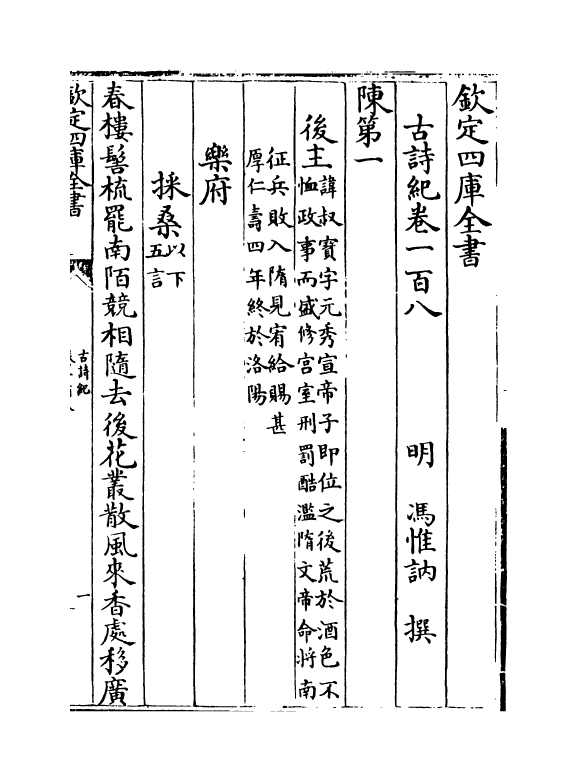 欽定四庫全書
古詩紀卷一百八
明 馮惟訥 撰
陳第一
後主諱叔寳字元秀宣帝子即位之後荒於酒色不
恤政事而盛修宫室刑罰酷濫隋文帝命將南
征兵敗入隋見宥給賜甚
厚仁壽四年終於洛陽
樂府
採桑以下
五言
春樓髻梳罷南陌競相隨去後花叢散風來香處移廣
欽定四庫全書
古詩紀
一